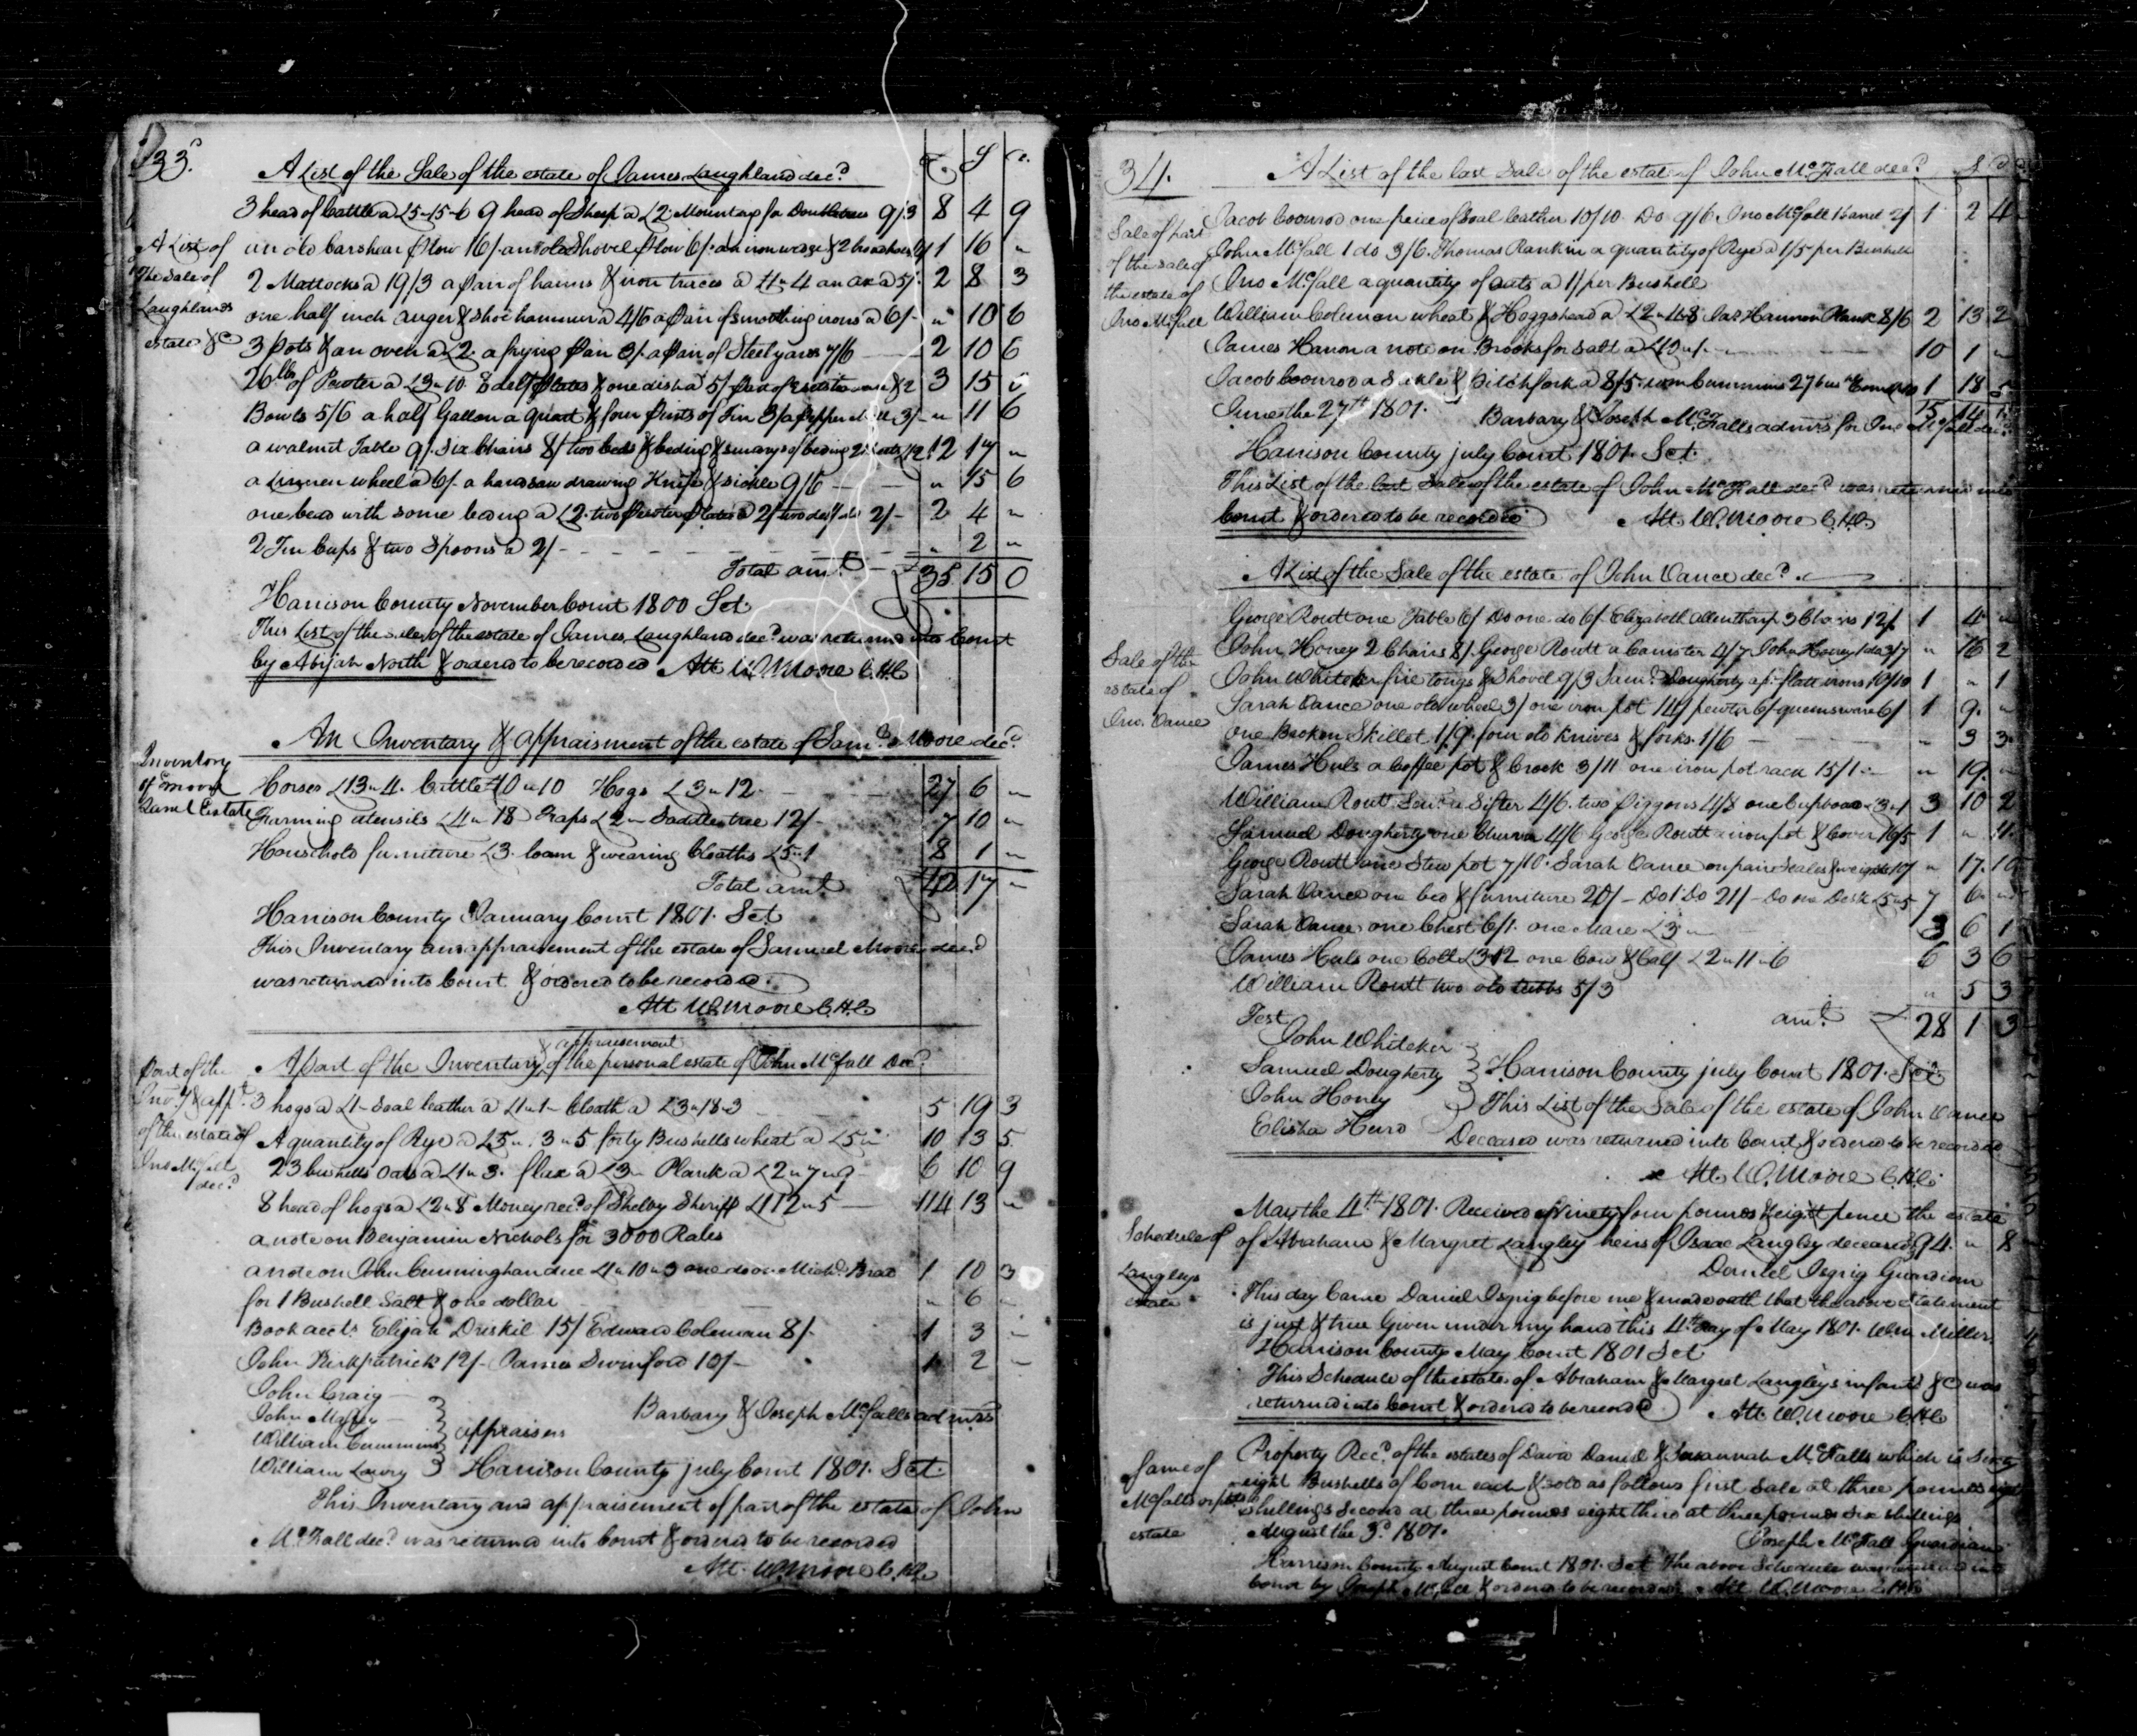 33.
A List of the Sale of the estate of James Laughland decd
£ S d
3 head of Cattle a £5-15-6 9 head of Sheep a £2 Mounting for Doubletrees 9/3 8 4 9
A List of
The Sale of
Laughlands
estate &c
an old barshear plow 16/ an old Shovel plow 6/ an iron wedge & 2 1 16 "
2 Mattocks a 19/3 a pair of hames & iron traces a £1"4 an ax a 5/ 2 8 3
one half inch auger & shoe hammer a 4/6 a pair of smoothing irons a 6/- " 10 6
3 pots & an oven a £2. a frying pan 3/ a pair of Steelyards 7/6 2 10 6
26 lb of Pewter a £3"10 8 delf plates & one dish a 5/ 3 15
Bowls 5/6 a half Gallon a quart & four pints of Tin 3/ a pepper Mill 3/- " 11 6
a walnut Table 9/. Six Chairs 8/ two beds & beding & 12 17 "
a Linnen wheel a 6/. a handsaw drawing Knife & sickle 9/6 " 15 6
one bead with some beding a £2. two pewter plates a 2/ two delf do 2/- 2 4 "
2 Tin Cups & two Spoons a 2/- " 2 "
Total amt £35 15 0
Harrison County November Court 1800 Sct
This List of the sale of the estate of James Laughland decd was returned into Court
by Abijah North & ordered to be recorded Att W. Moore C.H.C
An Inventory & appraisment of the estate of Saml Moore decd
Inventory
of Moore
Saml Estate
Horses £13"4. Cattle £10"10 Hogs £3"12. 27 6 "
Farming utensils £4"18- Traps £2" Saddletree 12/- 7 10 "
Household furniture £3. loam & wearing Cloaths £5"1 8 1 "
Total amt £42 17 "
Harrison County January Court 1801. Sct
This Inventory and appraisement of the estate of Samuel Moore decd
was returned into Court & ordered to be recorded.
Att W. Moore C.H.C
appraisement
A part of the Inventory & of the personal estate of John McFall Decd
Part of the
Invy & appt
of the estate of
Jno McFall
decd
3 hogs a £1- Soal leather a £1"1- Cloath a £3"18"3 5 19 3
A quantity of Rye a £5". 3"5 forty Bushells wheat a £5" 10 13 5
23 bushells Oats a £1"3. flax a £3- Plank a £2"7"9- 6 10 9
8 head of hogs a £2"8 Money recd of Shelby Sheriff £112"5 114 13 "
a note on Benjamin Nichols for 3000 Rales
a note on John Cunningham due £1"10"3 one do on Michl 1 10 3
for 1 Bushell Salt & one dollar " 6 "
Book accts Elijah Driskil 15/ Edward Coleman 8/- 1 3 "
John Kirkpatrick 12/- James Swinford 10/- 1 2 "
John Craig
John
William Cummins
William Lowry
appraisers
Barbary & Joseph McFalls admrs
Harrison County July Court 1801. Sct.
This Inventory and appraisement of part of the estate of John
McFall decd was returned into Court & ordered to be recorded
Att. W. Moore C.H.C
34.
A List of the last Sale of the estate of John McFall decd
S d
Sale of part
of the sale of
the estate of
Jno McFall
Jacob Coonrod one peice of Soal leather 10/10- Do 9/6. Jno McFall 1 barrel 2/ 1 2 4
John McFall 1 do 3/6. Thomas Rankin a quantity of Rye a 1/5 per Bushell
Jno McFall a quantity of oats a 1/ per Bushell
William Coleman wheat & Hoggshead a £2"4"8 Jas Hannon Plank 8/6 2 13 2
James Hanon a note on Brooks for Salt a £10"1- 10 1 "
Jacob Coonrod a Sickle & pitchfork a 8/5. Wm Cummins 1 18 5
15 14
June the 27th 1801. Barbary & Joseph McFalls admrs for Jno McFall decd
Harrison County July Court 1801. Sct.
This List of the last Sale of the estate of John McFall decd was returned into
Court & ordered to be recorded Att. W. Moore C.H.C.
A List of the Sale of the estate of John Vance decd.
Sale of the
estate of
Jno. Vance
George Routt one Table 6/ Do one do 6/. Elizabeth Allenthorp 3 Chairs 12/ 1 4 "
John Honey 2 Chairs 8/. George Routt a Canister 4/7 John Honey 1 do 3/7 " 16 2
John Whiteker fire tongs & Shovel 9/3 Saml Dougherty a pr flatt irons 10/10 1 " 1
Sarah Vance one old wheel 3/ one iron pot 14/ pewter 6/ queensware 6/ 1 9 "
one Broken Skillet 1/9. four old Knives & forks 1/6 " 3 3
James Huls a Coffee pot & Crook 3/11 one iron pot rack 15/1 " 19 "
William Routt Senr a Sifter 4/6. two piggons 4/8 one Cupboard £3"1 3 10 2
Samuel Dougherty one Churn 4/6 George Routt a iron pot & Cover 16/5 1 " 11
George Routt one Stew pot 7/10. Sarah Vance on pair Scales & weights 10/ " 17 10
Sarah Vance one bed & furniture 20/- Do 1 Do 21/- Do one Desk £5"5 7 6 "
Sarah Vance one Chest 6/1. one Mare £3" 3 6 1
James Huls one Colt £3"12 one Cow & Calf £2"11"6 6 3 6
William Routt two old tubbs 5/3 " 5 3
Test amt £28 1 3
John Whiteker
Samuel Dougherty
John Honey
Elisha Hurd
Harrison County July Court 1801. Sct
This List of the Sale of the estate of John Vance
Deceased was returned into Court & ordered to be recorded
Att. W. Moore C.H.C.
Schedule of
Langleys
estate
May the 4th 1801. Received of Ninety four pounds & eight pence the estate
of Abraham & Margret Langley heirs of Isaac Langley deceased 94. " 8
Daniel Isgrig Guardian
This day Came Daniel Isgrig before me & made oath that the above Statement
is just & true Given under my hand this 4th day of May 1801. Wm Miller
Harrison County May Court 1801 Sct
This Schedule of the estate of Abraham & Margret Langleys infants &c was
returned into Court & ordered to be recorded Att. W. Moore C.H.C
Same of
McFalls orphans
estate
Property Recd of the estates of David Daniel & Susannah McFalls which is Sixty
eight Bushells of Corn each & sold as follows first Sale at three pounds eight
shillings Second at three pounds eight third at three pounds six shillings
August the 3d 1801.
Joseph McFall Guardian
Harrison County August Court 1801. Sct The above Schedule was returned into
Court by Joseph McFall & ordered to be recorded. Att W. Moore C.H.C